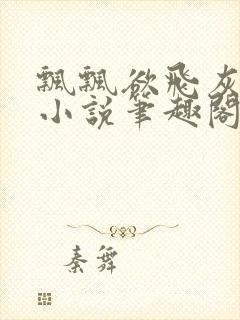 飄飄欲飛灰
小說筆趣閣
秦舞